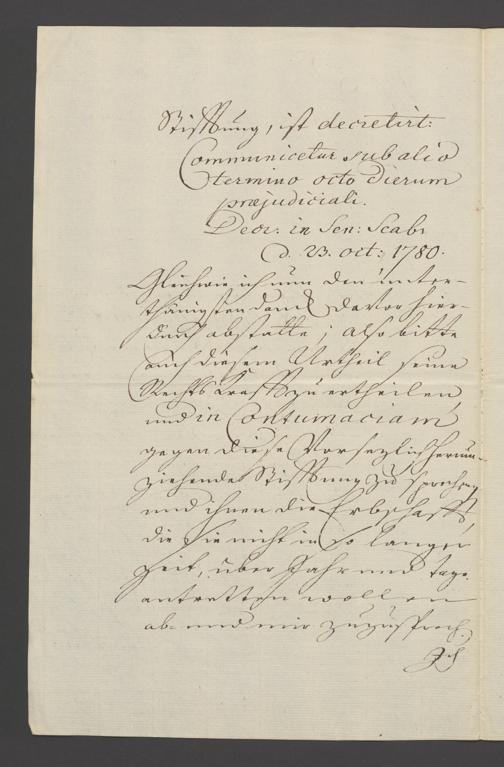 Stifftung, ist decretirt:
Communicetur sub alio
termino octo dierum
præjudiciali.
Decr: in Sen: Scab:
d. 23. oct: 1780.
Gleichwie ich nun den unter-
thänigsten danck davor hier-
durch abstatte; also bitte
auch diesem Urtheil seine
Rechts Krafft zu ertheilen,
und in Contumaciam
gegen diese Vorsezlich herum-
ziehende Stifftung zu sprechen
und ihnen die Erbschafft,
die Sie nicht in so langer
Zeit, über Jahr und tage
antretten wollen
ab- und mir zuzusprech.
Ich